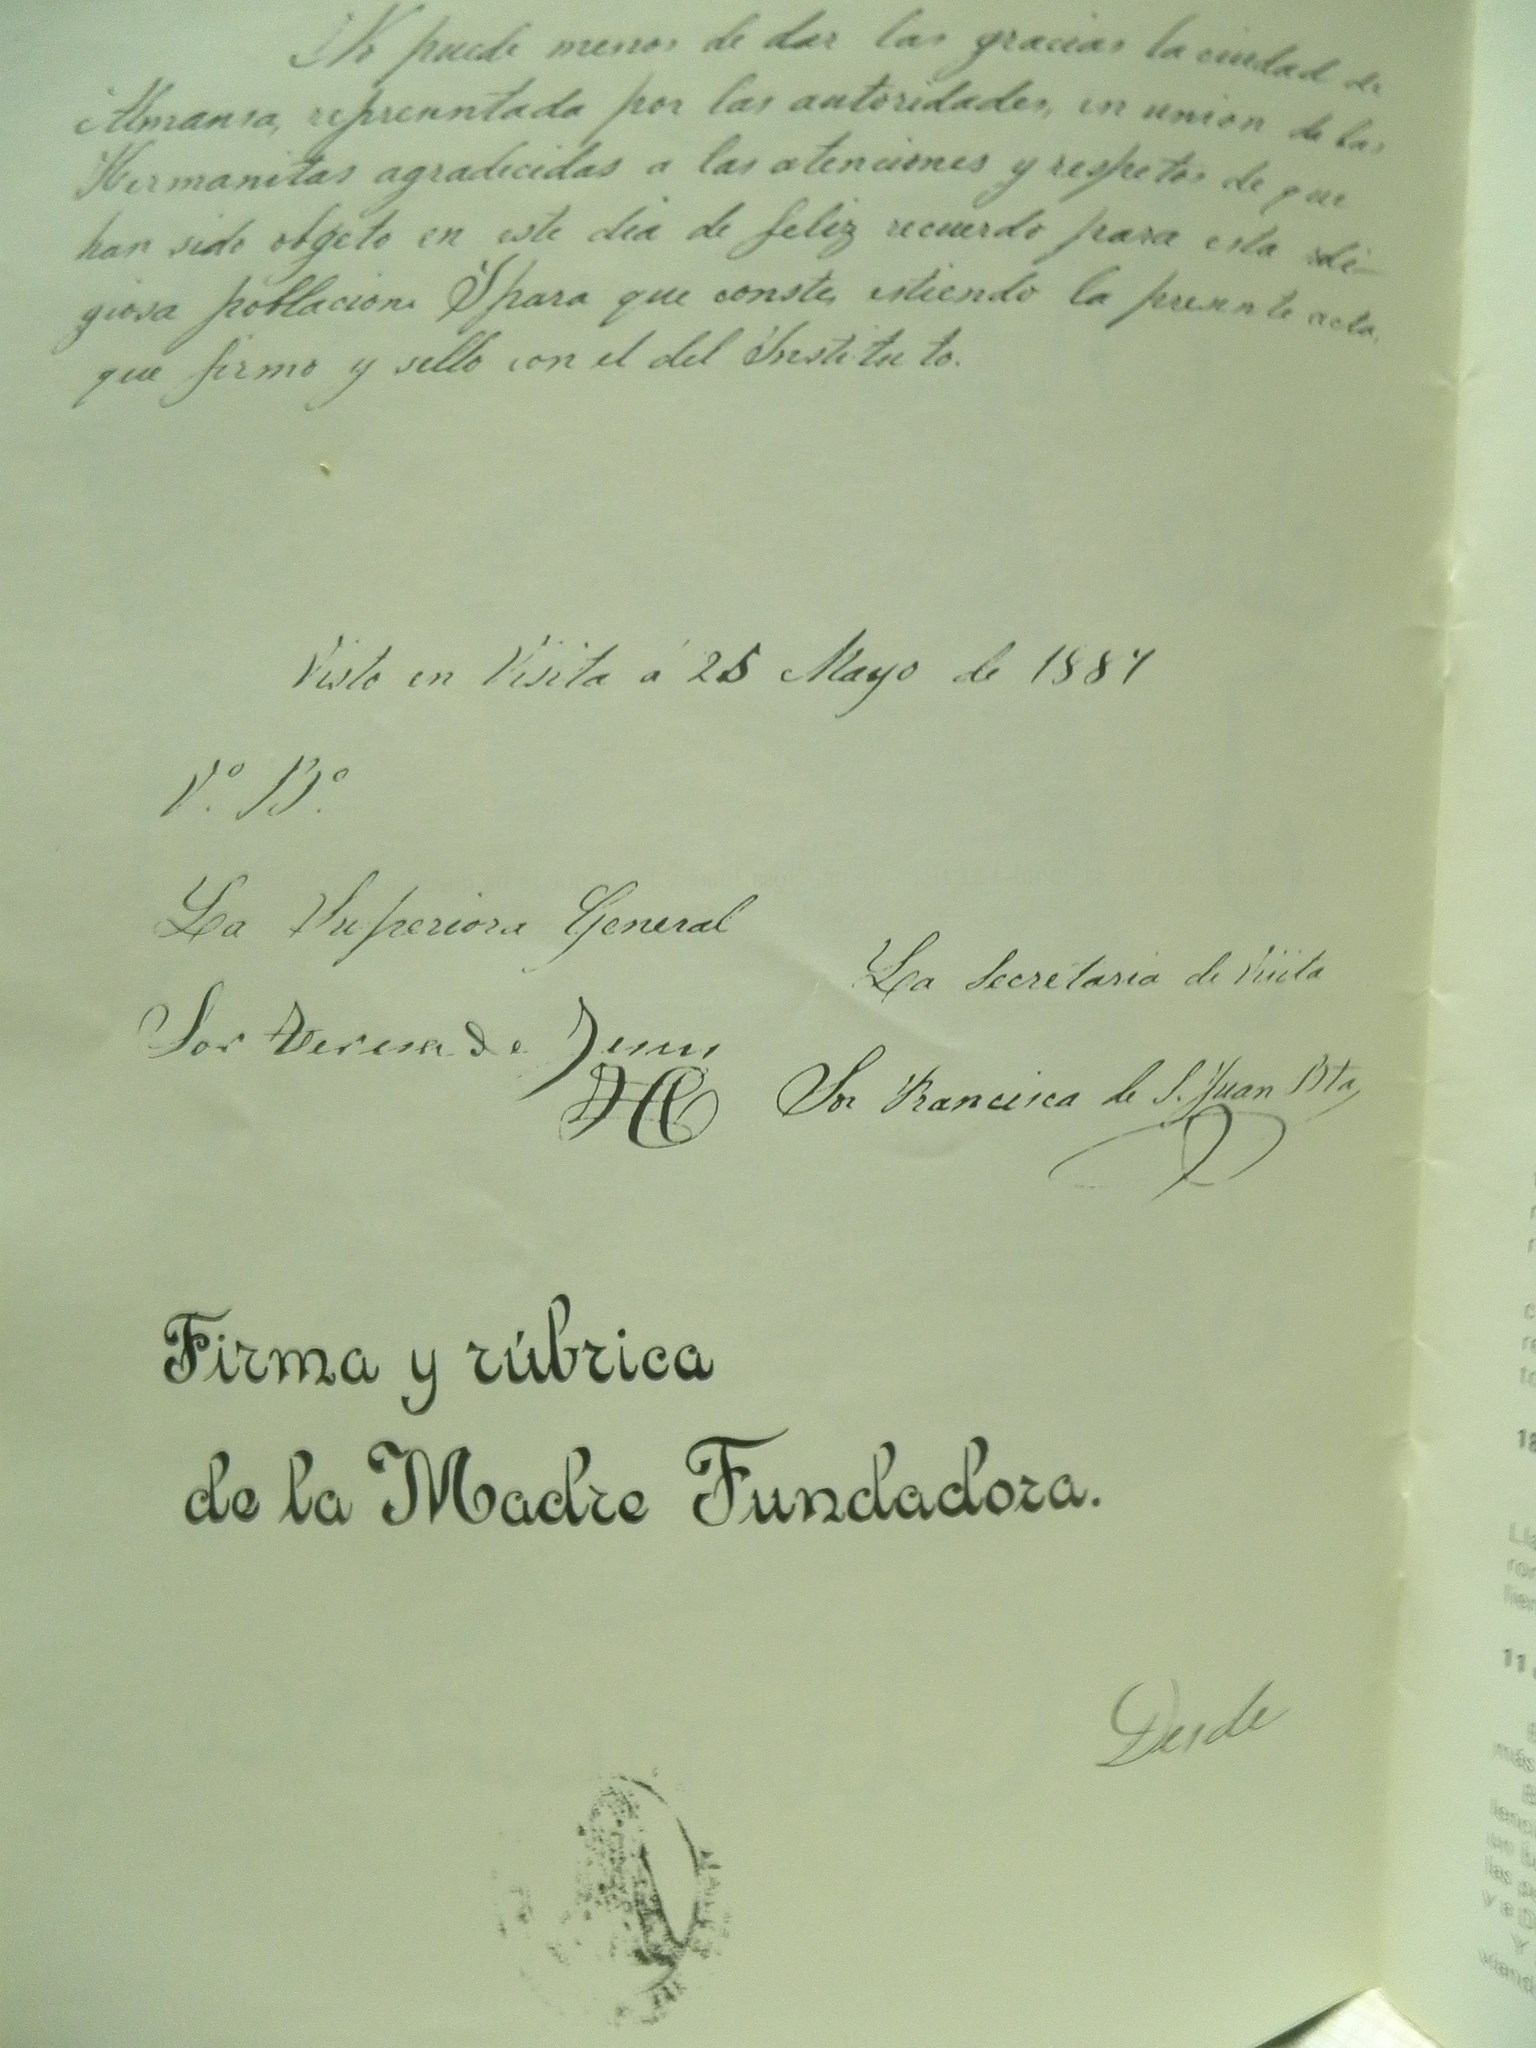 No puede menos de dar las gracias la ciudad de
Almansa, representada por las autoridades, en union de las
Hermanitas agradecidas a las atenciones y respetos de que
han sido objeto en este dia de feliz recuerdo para esta reli-
giosa poblacion. Y para que conste, estiendo la presente acta,
que firmo y sello con el del Instituto.
Visto en Visita á 25 Mayo de 1887
V.º B.º
La Superiora General
Sor Teresa de Jesus
La Secretaria de Visita
Sor Francisca de S. Juan Bta
Firma y rúbrica
de la Madre Fundadora.
Desde